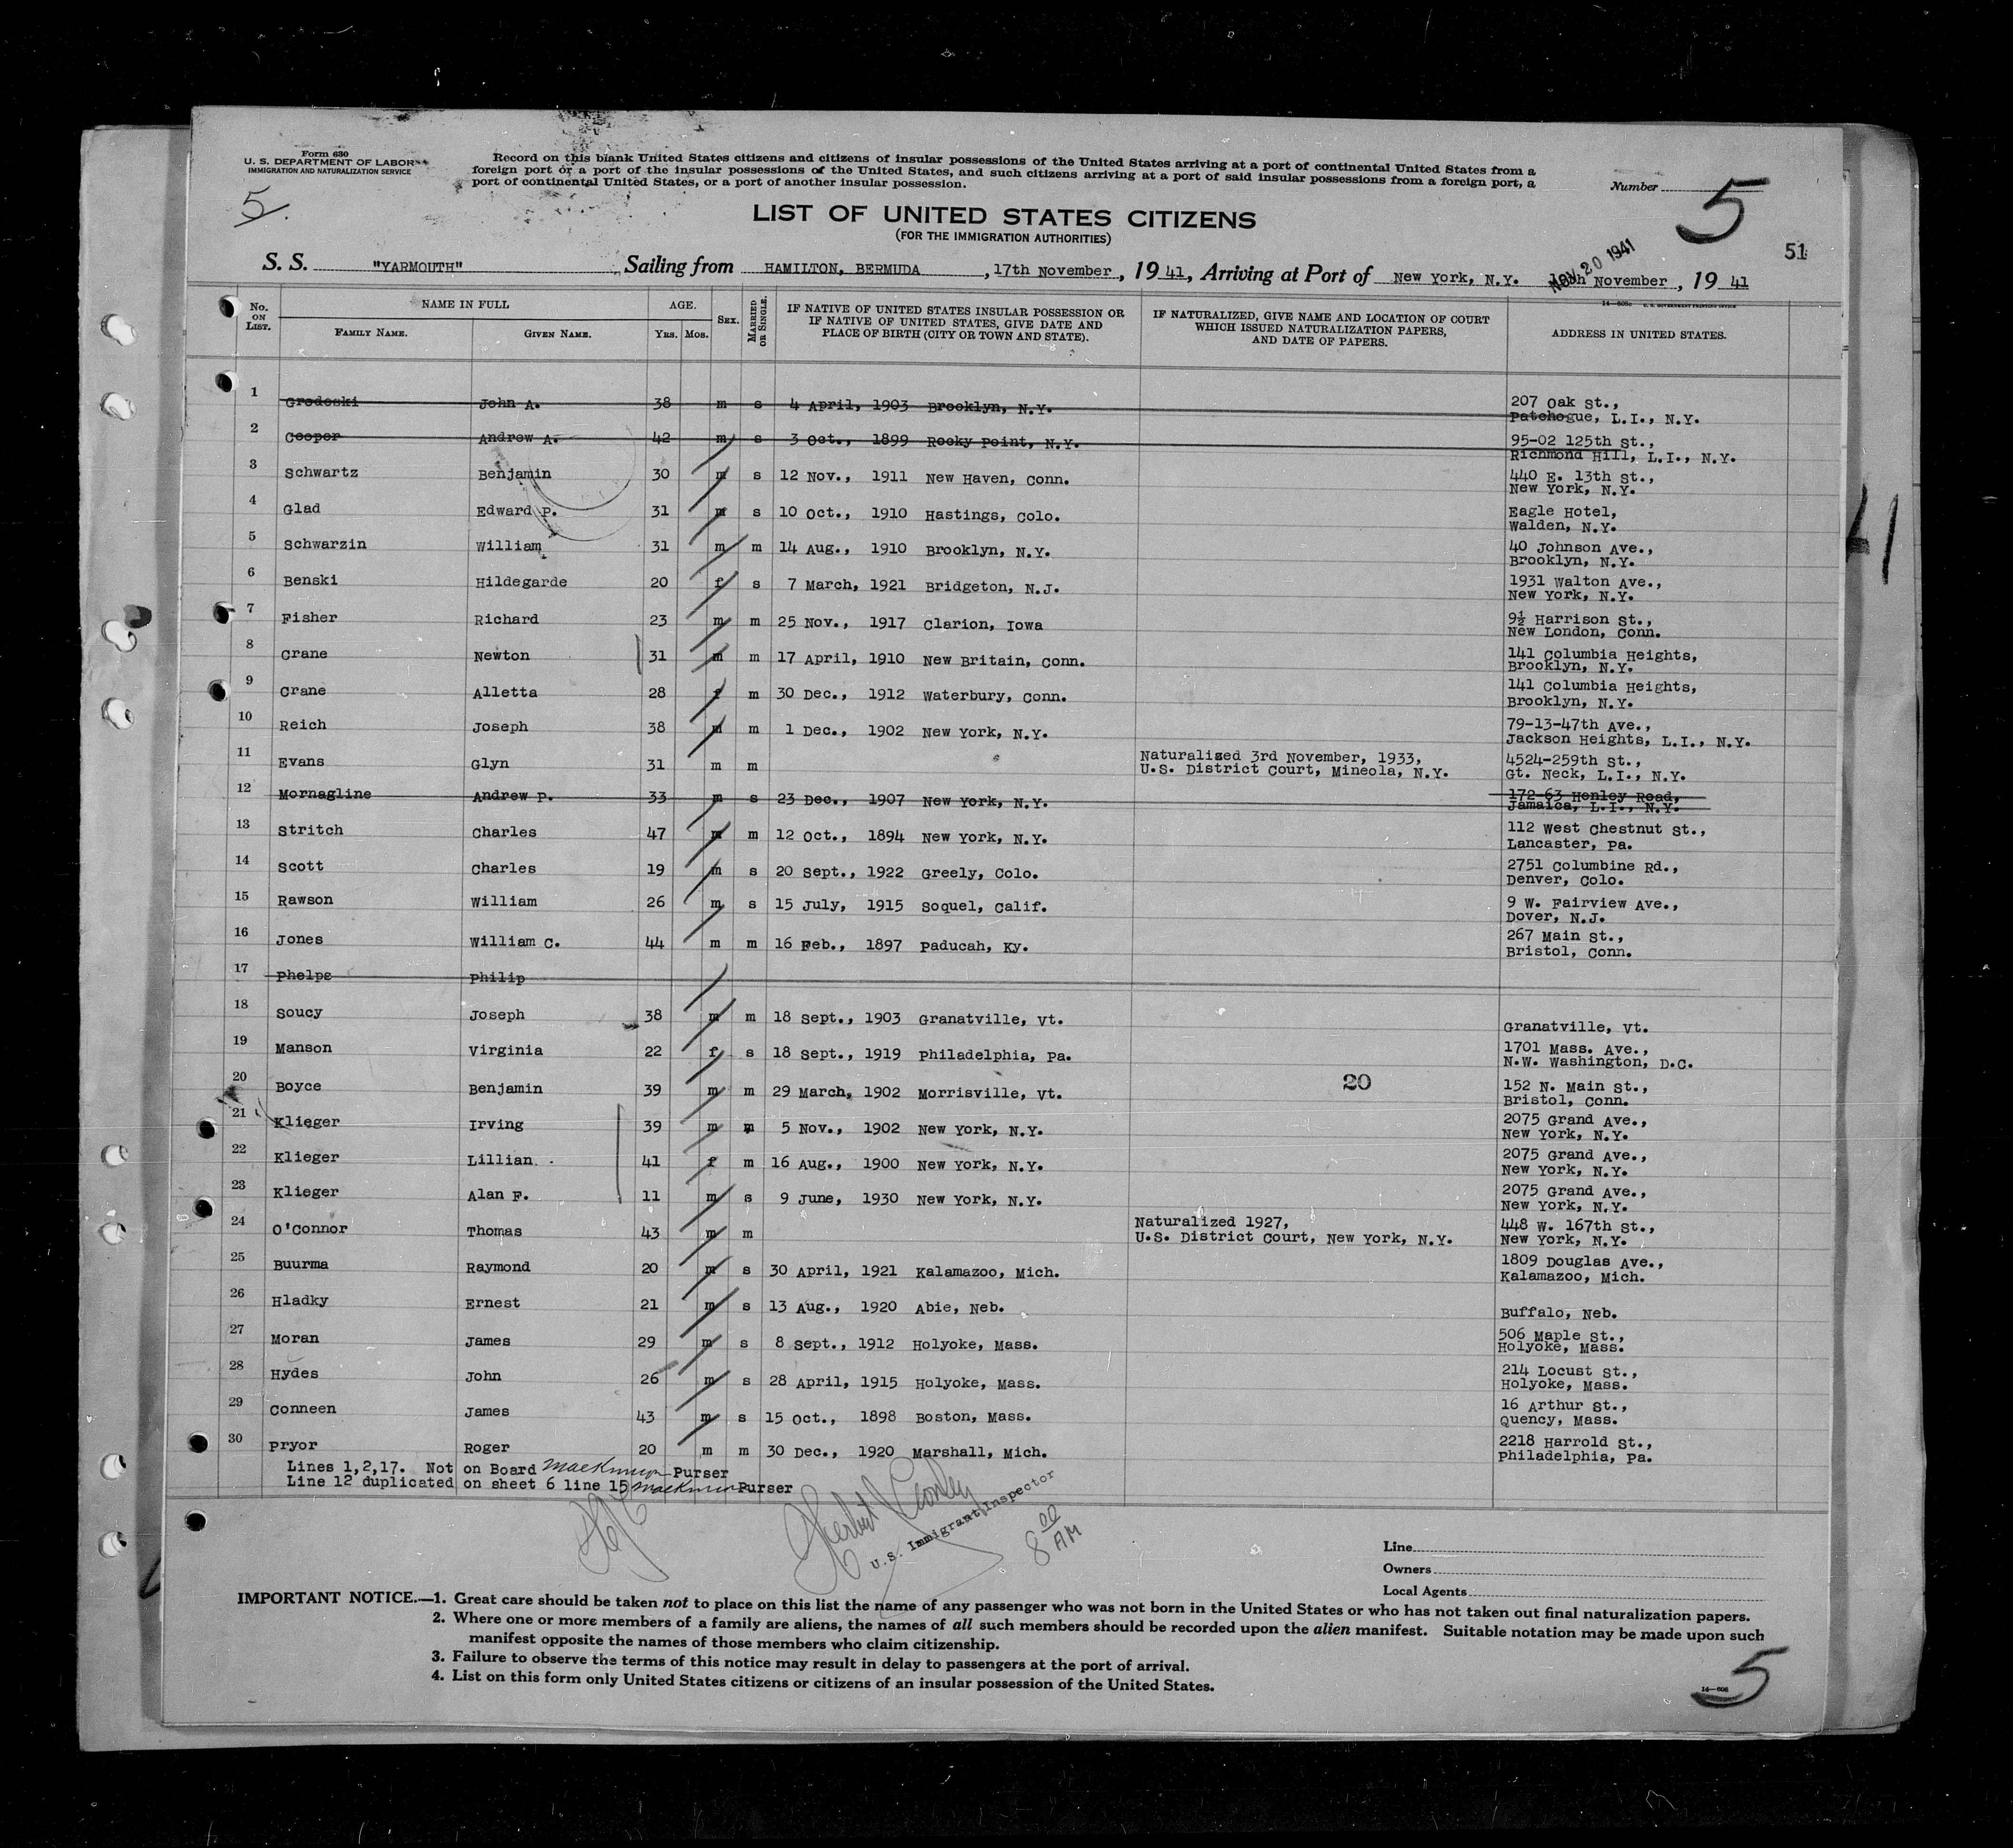 Form 630
U. S. DEPARTMENT OF LABOR
IMMIGRATION AND NATURALIZATION SERVICE
5.
Record on this blank United States citizens and citizens of insular possessions of the United States arriving at a port of continental United States from a
foreign port or a port of the insular possessions of the United States, and such citizens arriving at a port of said insular possessions from a foreign port, a
port of continental United States, or a port of another insular possession.
Number 5
LIST OF UNITED STATES CITIZENS
(FOR THE IMMIGRATION AUTHORITIES)
51
NOV 20 1941
S. S. "YARMOUTH" Sailing from HAMILTON, BERMUDA, 17th November, 19 41, Arriving at Port of New York, N.Y. November, 19 41
No. ON LIST. NAME IN FULL FAMILY NAME. GIVEN NAME. AGE. YRS. MOS. SEX. MARRIED OR SINGLE. IF NATIVE OF UNITED STATES INSULAR POSSESSION OR IF NATIVE OF UNITED STATES, GIVE DATE AND PLACE OF BIRTH (CITY OR TOWN AND STATE). IF NATURALIZED, GIVE NAME AND LOCATION OF COURT WHICH ISSUED NATURALIZATION PAPERS, AND DATE OF PAPERS. ADDRESS IN UNITED STATES.
1 Grodoski John A. 38 m s 4 April, 1903 Brooklyn, N.Y. 207 Oak St.,
Patchogue, L.I., N.Y.
2 Cooper Andrew A. 42 m s 3 Oct., 1899 Rocky Point, N.Y. 95-02 125th St.,
Richmond Hill, L.I., N.Y.
3 Schwartz Benjamin 30 m s 12 Nov., 1911 New Haven, Conn. 440 E. 13th St.,
New York, N.Y.
4 Glad Edward P. 31 m s 10 Oct., 1910 Hastings, Colo. Eagle Hotel,
Walden, N.Y.
5 Schwarzin William 31 m m 14 Aug., 1910 Brooklyn, N.Y. 40 Johnson Ave.,
Brooklyn, N.Y.
6 Benski Hildegarde 20 f s 7 March, 1921 Bridgeton, N.J. 1931 Walton Ave.,
New York, N.Y.
7 Fisher Richard 23 m m 25 Nov., 1917 Clarion, Iowa 9½ Harrison St.,
New London, Conn.
8 Crane Newton 31 m m 17 April, 1910 New Britain, Conn. 141 Columbia Heights,
Brooklyn, N.Y.
9 Crane Alletta 28 f m 30 Dec., 1912 Waterbury, Conn. 141 Columbia Heights,
Brooklyn, N.Y.
10 Reich Joseph 38 m m 1 Dec., 1902 New York, N.Y. 79-13-47th Ave.,
Jackson Heights, L.I., N.Y.
11 Evans Glyn 31 m m Naturalized 3rd November, 1933, 4524-259th St.,
U.S. District Court, Mineola, N.Y. Gt. Neck, L.I., N.Y.
12 Mornagline Andrew P. 33 m s 23 Dec., 1907 New York, N.Y. 172-63 Henley Road,
Jamaica, L.I., N.Y.
13 Stritch Charles 47 m m 12 Oct., 1894 New York, N.Y. 112 West Chestnut St.,
Lancaster, Pa.
14 Scott Charles 19 m s 20 Sept., 1922 Greely, Colo. 2751 Columbine Rd.,
Denver, Colo.
15 Rawson William 26 m s 15 July, 1915 Soquel, Calif. 9 W. Fairview Ave.,
Dover, N.J.
16 Jones William C. 44 m m 16 Feb., 1897 Paducah, Ky. 267 Main St.,
Bristol, Conn.
17 Phelps Philip
18 Soucy Joseph 38 m m 18 Sept., 1903 Granatville, Vt. Granatville, Vt.
19 Manson Virginia 22 f s 18 Sept., 1919 Philadelphia, Pa. 1701 Mass. Ave.,
N.W. Washington, D.C.
20 Boyce Benjamin 39 m m 29 March, 1902 Morrisville, Vt. 20 152 N. Main St.,
Bristol, Conn.
21 Klieger Irving 39 m m 5 Nov., 1902 New York, N.Y. 2075 Grand Ave.,
New York, N.Y.
22 Klieger Lillian 41 f m 16 Aug., 1900 New York, N.Y. 2075 Grand Ave.,
New York, N.Y.
23 Klieger Alan F. 11 m s 9 June, 1930 New York, N.Y. 2075 Grand Ave.,
New York, N.Y.
24 O'Connor Thomas 43 m m Naturalized 1927, 448 W. 167th St.,
U.S. District Court, New York, N.Y. New York, N.Y.
25 Buurma Raymond 20 m s 30 April, 1921 Kalamazoo, Mich. 1809 Douglas Ave.,
Kalamazoo, Mich.
26 Hladky Ernest 21 m s 13 Aug., 1920 Abie, Neb. Buffalo, Neb.
27 Moran James 29 m s 8 Sept., 1912 Holyoke, Mass. 506 Maple St.,
Holyoke, Mass.
28 Hydes John 26 m s 28 April, 1915 Holyoke, Mass. 214 Locust St.,
Holyoke, Mass.
29 Conneen James 43 m s 15 Oct., 1898 Boston, Mass. 16 Arthur St.,
Quency, Mass.
30 Pryor Roger 20 m m 30 Dec., 1920 Marshall, Mich. 2218 Harrold St.,
Philadelphia, Pa.
Lines 1,2,17. Not on Board Purser
Line 12 duplicated on sheet 6 line 15 Purser
U.S. Immigrant Inspector
8 00 AM
Line
Owners
Local Agents
IMPORTANT NOTICE.—1. Great care should be taken not to place on this list the name of any passenger who was not born in the United States or who has not taken out final naturalization papers.
2. Where one or more members of a family are aliens, the names of all such members should be recorded upon the alien manifest. Suitable notation may be made upon such
manifest opposite the names of those members who claim citizenship.
3. Failure to observe the terms of this notice may result in delay to passengers at the port of arrival.
4. List on this form only United States citizens or citizens of an insular possession of the United States.
14—606
5